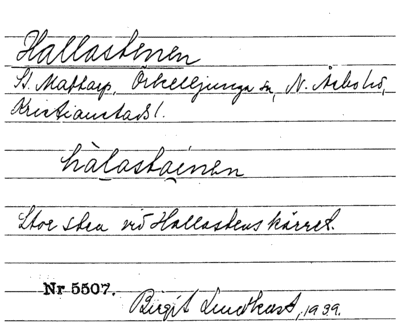 Hallastenen
St. Mattarp, Örkelljunga sn, N. Åsbo hd,
Kristianstads l.
hàlastainen
Stor sten vid Hallastens kärret.
Nr 5507.
Birgit Lundkvist, 1939.